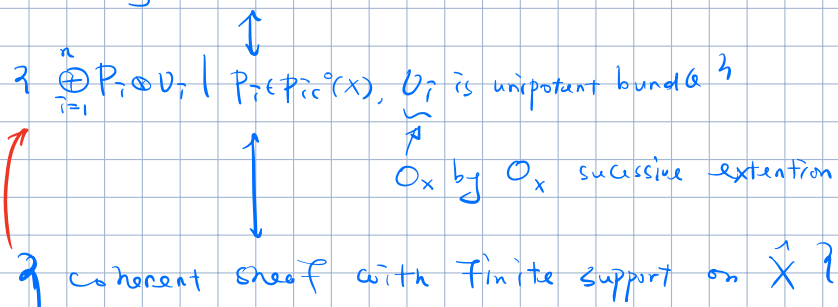 { ⊕_{i=1}^{n} P_i ⊗ U_i | P_i ∈ Pic⁰(X), U_i is unipotent bundle }
O_X by O_X sucessive extention
{ coherent sheaf with finite support on X̂ }